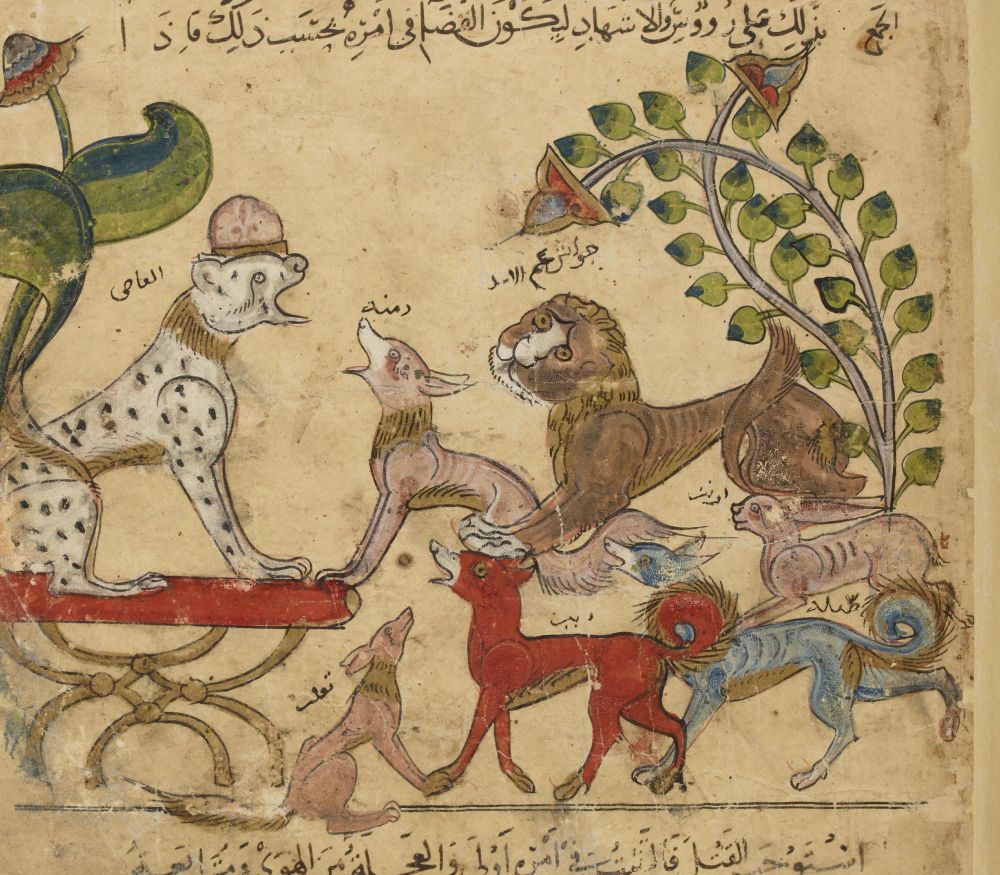 بذلك على رؤوس الاشهاد ليكون القضا في امره بحسب ذلك فاذا
الجمع
القاضي
دمنه
جواش عم الاسد
ارنب
ذيب
ثعلب
استوجب القتل فالتثبت في امره اولى والعجله من الهوى ومتابعه